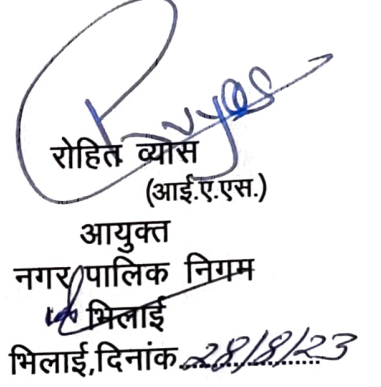 Rvyas
रोहित व्यास
(आई.ए.एस.)
आयुक्त
नगर पालिक निगम
भिलाई
भिलाई,दिनांक 28/8/23